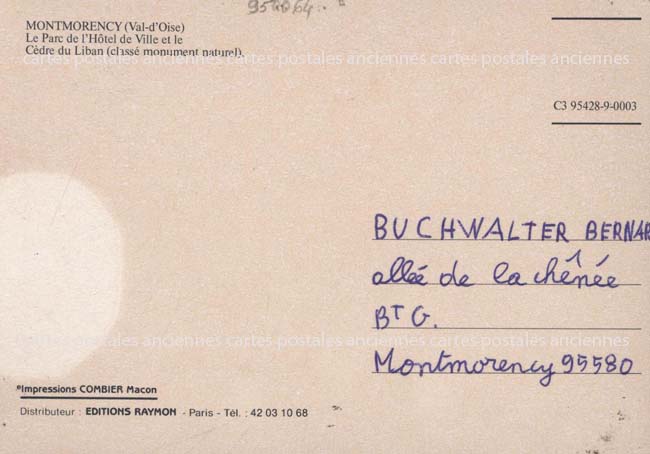 MONTMORENCY (Val-d'Oise)
Le Parc de l'Hôtel de Ville et le
Cèdre du Liban (classé monument naturel).
cartes postales anciennes cartes postales anciennes
C3 95428-9-0003
BUCHWALTER BERNAR
allée de la chênée
BT G.
cartes postales anciennes cartes postales anciennes
Montmorency 95580
Impressions COMBIER Macon
Distributeur : EDITIONS RAYMON - Paris - Tél. : 42 03 10 68